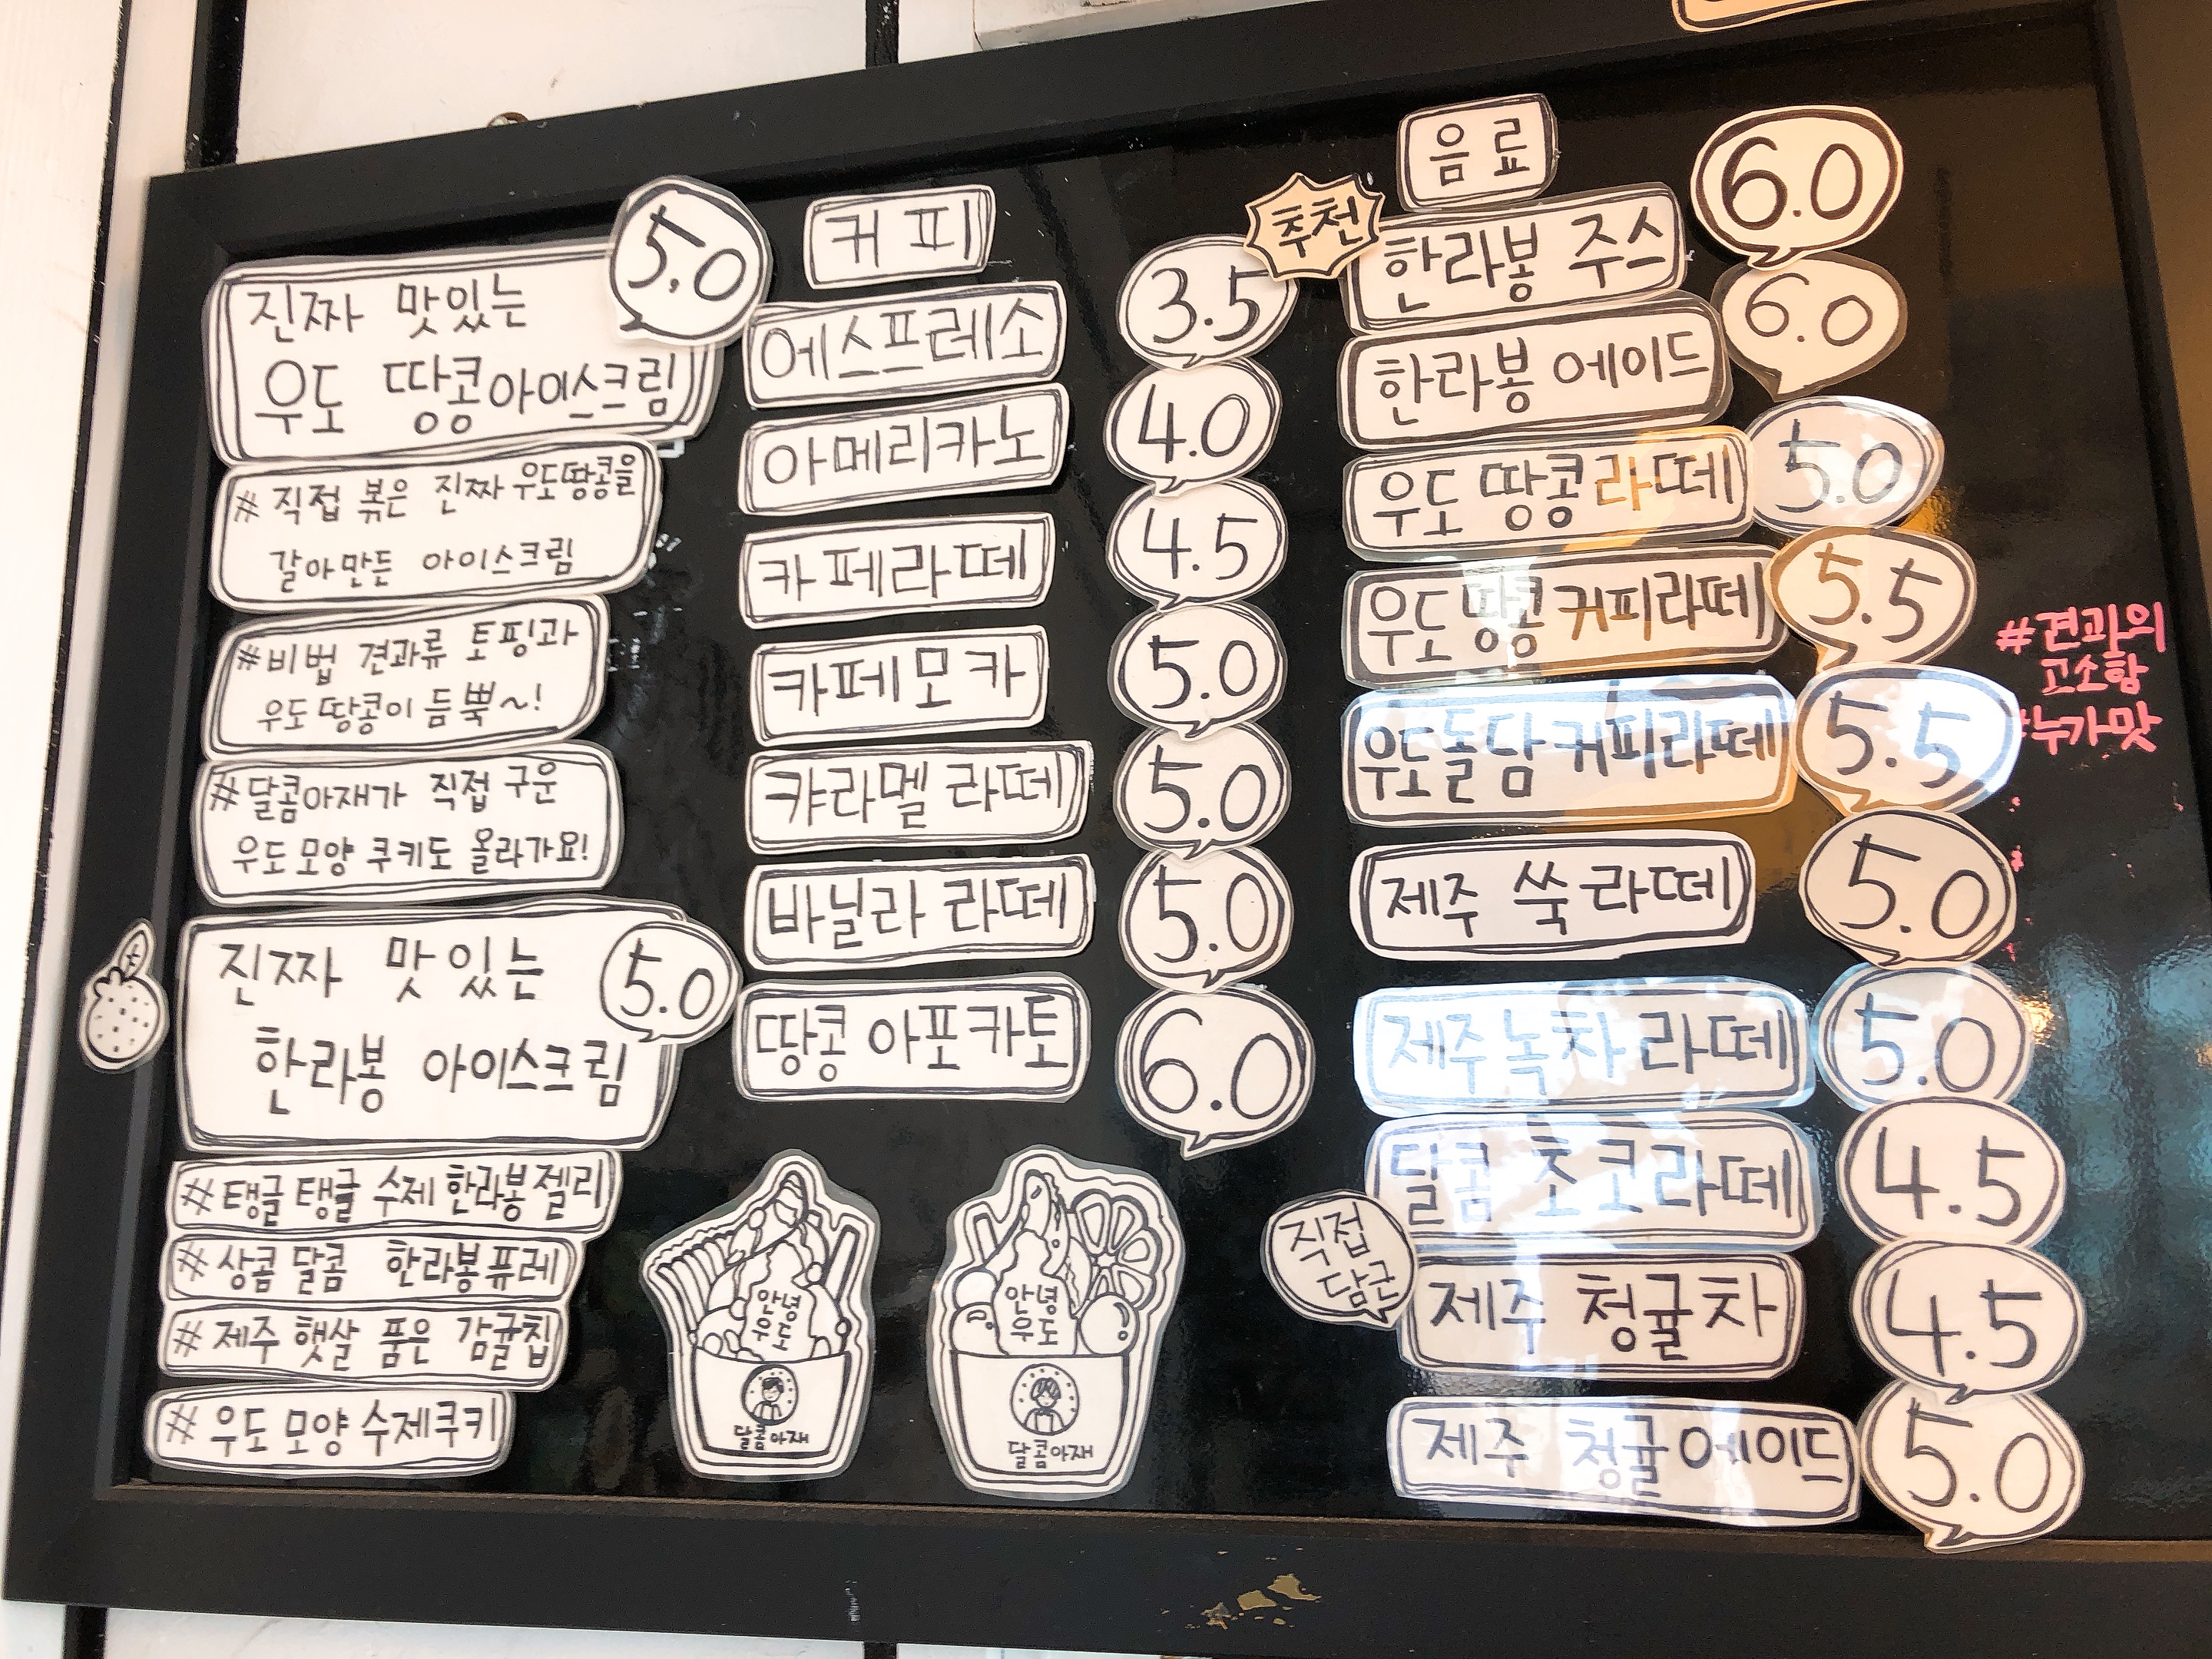 진짜 맛있는
우도 땅콩아이스크림
5.0
# 직접 볶은 진짜 우도땅콩을
갈아만든 아이스크림
#비법 견과류 토핑과
우도땅콩이 듬뿍~!
#달콤아재가 직접 구운
우도모양 쿠키도 올라가요!
진짜 맛있는
한라봉 아이스크림
5.0
# 탱글탱글 수제 한라봉젤리
# 상콤달콤 한라봉퓨레
# 제주 햇살 품은 감귤칩
# 우도모양 수제쿠키
커피
에스프레소 3.5
아메리카노 4.0
카페라떼 4.5
카페모카 5.0
캬라멜 라떼 5.0
바닐라 라떼 5.0
땅콩 아포카토 6.0
안녕
우도
달콤아재
안녕
우도
달콤아재
음료
추천
한라봉 주스 6.0
한라봉 에이드 6.0
우도 땅콩라떼 5.0
우도땅콩커피라떼 5.5
우도돌담커피라떼 5.5
#견과의
고소함
#누가맛
제주 쑥라떼 5.0
제주녹차라떼 5.0
달콤 초코라떼 4.5
직접
담근
제주 청귤차 4.5
제주 청귤에이드 5.0